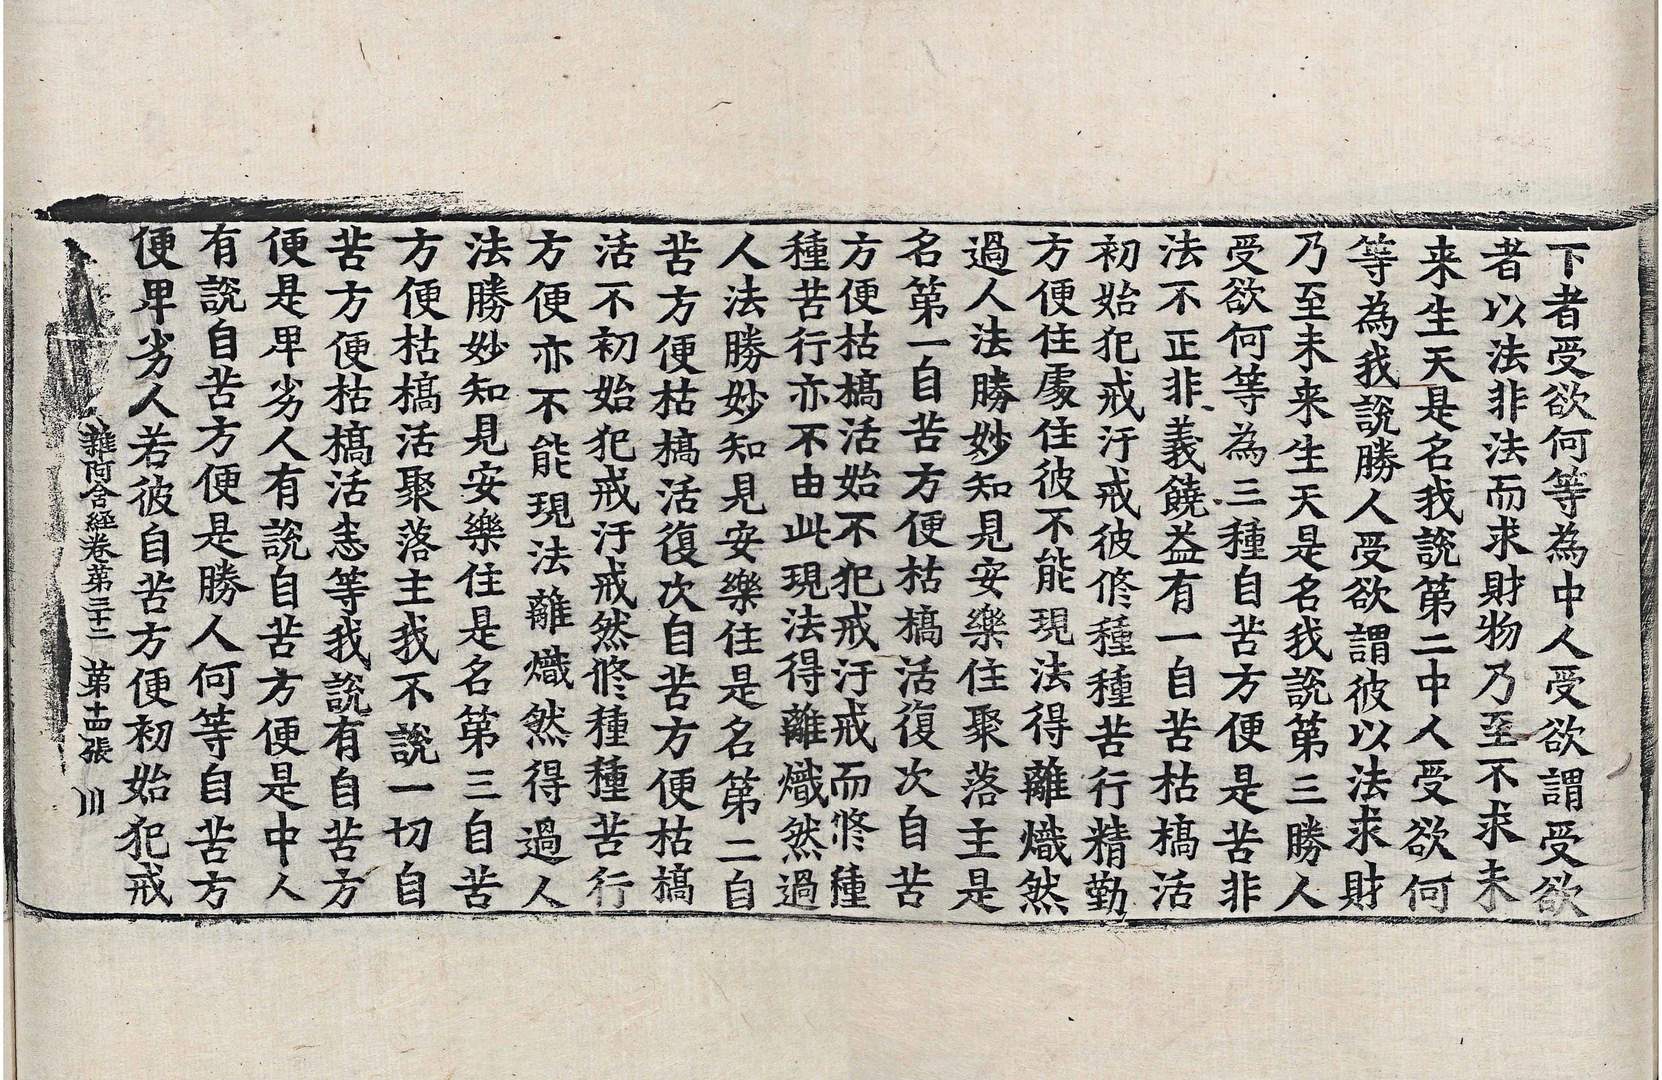 下者受欲何等為中人受欲謂受欲
者以法非法而求財物乃至不求未
来生天是名我說第二中人受欲何
等為我說勝人受欲謂彼以法求財
乃至未来生天是名我說第三勝人
受欲何等為三種自苦方便是苦非
法不正非義饒益有一自苦枯槁活
初始犯戒汙戒彼修種種苦行精勤
方便住處住彼不能現法得離熾然
過人法勝妙知見安樂住聚落主是
名第一自苦方便枯槁活復次自苦
方便枯槁活始不犯戒汙戒而修種
種苦行亦不由此現法得離熾然過
人法勝妙知見安樂住是名第二自
苦方便枯槁活復次自苦方便枯槁
活不初始犯戒汙戒然修種種苦行
方便亦不能現法離熾然得過人
法勝妙知見安樂住是名第三自苦
方便枯槁活聚落主我不說一切自
苦方便枯槁活恚等我說有自苦方
便是卑劣人有說自苦方便是中人
有說自苦方便是勝人何等自苦方
便卑劣人若彼自苦方便初始犯戒
雜阿含經卷第三十二 第十四張